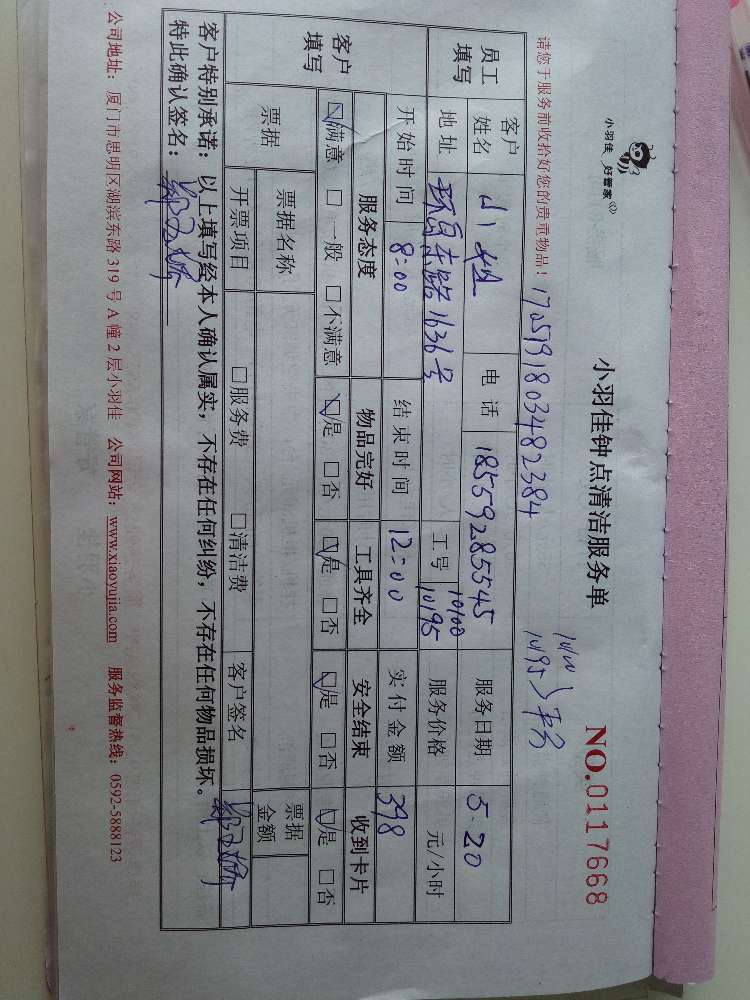 小羽佳 好管家
小羽佳钟点清洁服务单
NO.0117668
请您于服务前收拾好您的贵重物品！
17051918034823​84
10100
10195
员工填写 客户姓名 小姐 电话 18559285545 服务日期 5.20
地址 环岛东路1636号 工号 10100 10195 服务价格 元/小时
客户填写 开始时间 8:00 结束时间 12:00 实付金额 398
服务态度 物品完好 工具齐全 安全结束 收到卡片
☑满意 □一般 □不满意 ☑是 □否 ☑是 □否 ☑是 □否 ☑是 □否
票据 票据名称 票据金额
开票项目 □服务费 □清洁费 客户签名
客户特别承诺：以上填写经本人确认属实，不存在任何纠纷，不存在任何物品损坏。
特此确认签名：
公司地址：厦门市思明区湖滨东路319号A幢2层小羽佳 公司网站：www.xiaoyujia.com 服务监督热线：0592-5888123